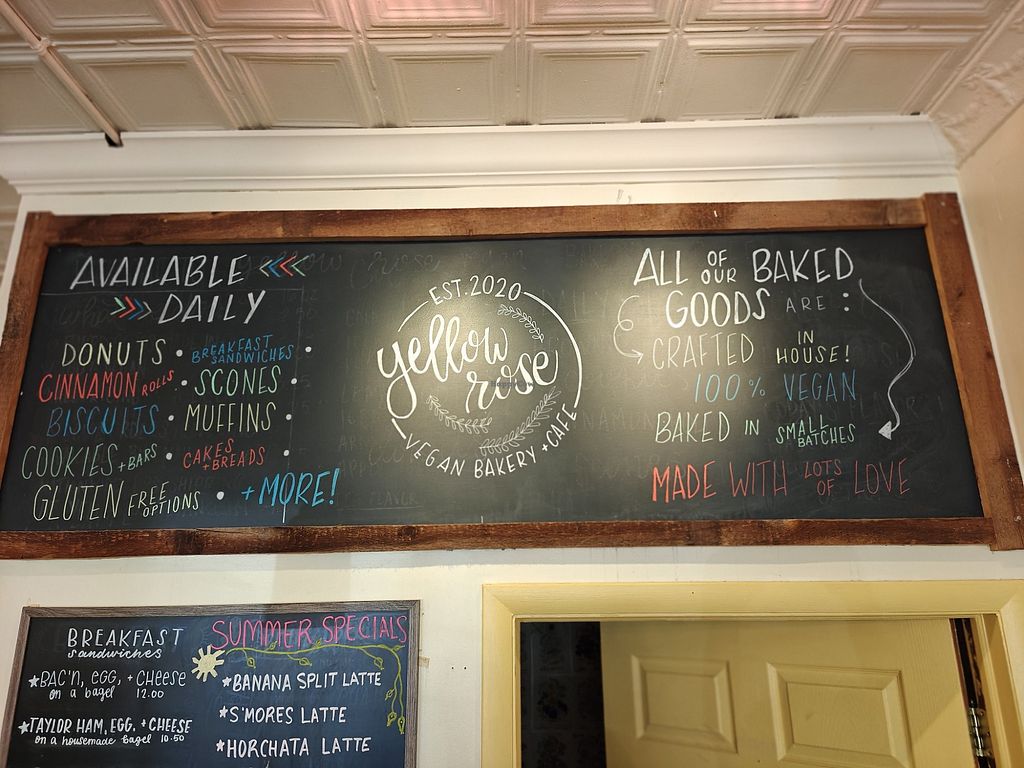 AVAILABLE
DAILY
DONUTS • BREAKFAST SANDWICHES •
CINNAMON ROLLS • SCONES •
BISCUITS • MUFFINS •
COOKIES + BARS • CAKES + BREADS •
GLUTEN FREE OPTIONS • + MORE!
EST. 2020
yellow
rose
VEGAN BAKERY + CAFE
ALL OF OUR BAKED
GOODS ARE :
CRAFTED IN HOUSE!
100% VEGAN
BAKED IN SMALL BATCHES
MADE WITH LOTS OF LOVE
BREAKFAST
sandwiches
BAC'N, EGG, + CHEESE
on a bagel 12.00
TAYLOR HAM, EGG, + CHEESE
on a housemade bagel 10.50
SUMMER SPECIALS
BANANA SPLIT LATTE
S'MORES LATTE
HORCHATA LATTE